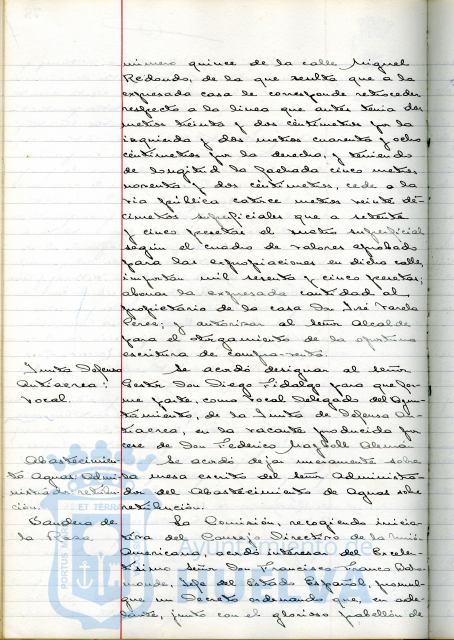 número quince de la calle Miguel
Redondo, de la que resulta que a la
expresada casa le corresponde retroceder
respecto a la línea que antes tenía dos
metros treinta y dos centímetros por la
izquierda y dos metros cuarenta y ocho
centímetros por la derecha, y teniendo
de longitud la fachada cinco metros
noventa y dos centímetros, cede a la
vía pública catorce metros veinte de-
címetros superficiales que a setenta
y cinco pesetas el metro superficial
según el cuadro de valores aprobado
para las expropiaciones en dicha calle,
importan mil sesenta y cinco pesetas;
abonar la expresada cantidad al
propietario de la casa Don José Varela
Pérez; y autorizar al señor Alcalde
para el otorgamiento de la oportuna
escritura de compra-venta.
Junta Defensa
Antiaérea:
Vocal.
Se acordó designar al señor
Gestor Don Diego Fidalgo para que for-
me parte, como vocal delegado del Ayun-
tamiento, de la Junta de Defensa An-
tiaérea, en la vacante producida por
cese de Don Federico Alemán
Abastecimien-
to Aguas Admi-
nistrador retribu-
ción.
Se acordó dejar nuevamente sobre
la mesa escrito del señor Administra-
dor del Abastecimiento de Aguas sobre
retribución.
Bandera de
la Raza
La Comisión, recogiendo inicia-
tiva del Consejo Directivo de la Unión
Americana, acordó interesar del Excelen-
tísimo Señor Don Francisco Franco Baha-
monde, Jefe del Estado Español, promul-
gue un Decreto ordenando que, en ade-
lante, junto con el glorioso pabellón de
Ayuntamiento de
HUELVA
PORTUS MARIS ET TERRAE